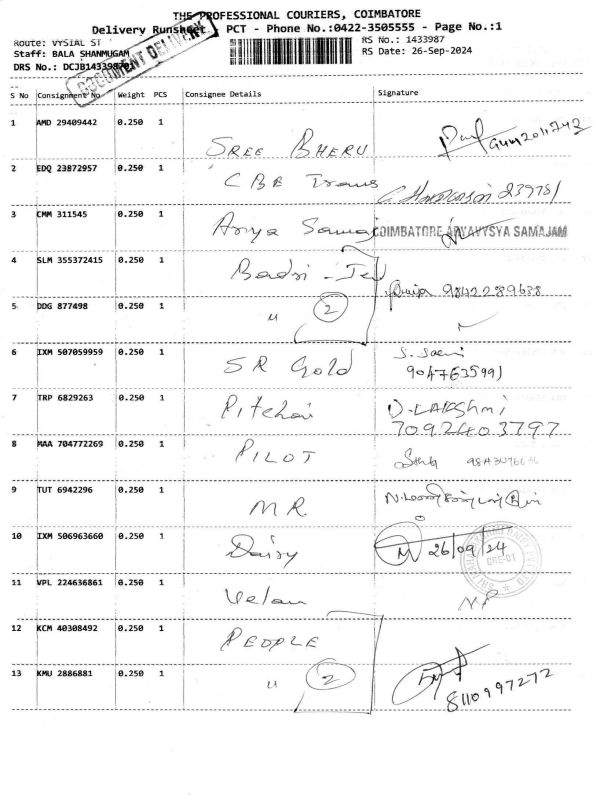 THE PROFESSIONAL COURIERS, COIMBATORE
Delivery Runsheet PCT - Phone No.:0422-3505555 - Page No.:1
Route: VYSIAL ST RS No.: 1433987
Staff: BALA SHANMUGAM RS Date: 26-Sep-2024
DRS No.: DCJB1433987
DOCUMENT DELIVERY
S No Consignment No Weight PCS Consignee Details Signature
1 AMD 29409442 0.250 1 SREE BHERU
2 EDQ 23872957 0.250 1 CBE Trans 239781
3 CMM 311545 0.250 1 Arya Samaj COIMBATORE ARYAVYSYA SAMAJAM
4 SLM 355372415 0.250 1 Badri - Jew 9842289638
5 DDG 877498 0.250 1 " 2
6 IXM 507059959 0.250 1 SR Gold
9047635991
7 TRP 6829263 0.250 1 Pitchai D-LAKSHMI
7092403797
8 MAA 704772269 0.250 1 PILOT
9 TUT 6942296 0.250 1 MR
10 IXM 506963660 0.250 1 Daisy 26/09/24
CBE-01
11 VPL 224636861 0.250 1 Velan N.P
12 KCM 40308492 0.250 1 PEOPLE
13 KMU 2886881 0.250 1 " 2 8110997272